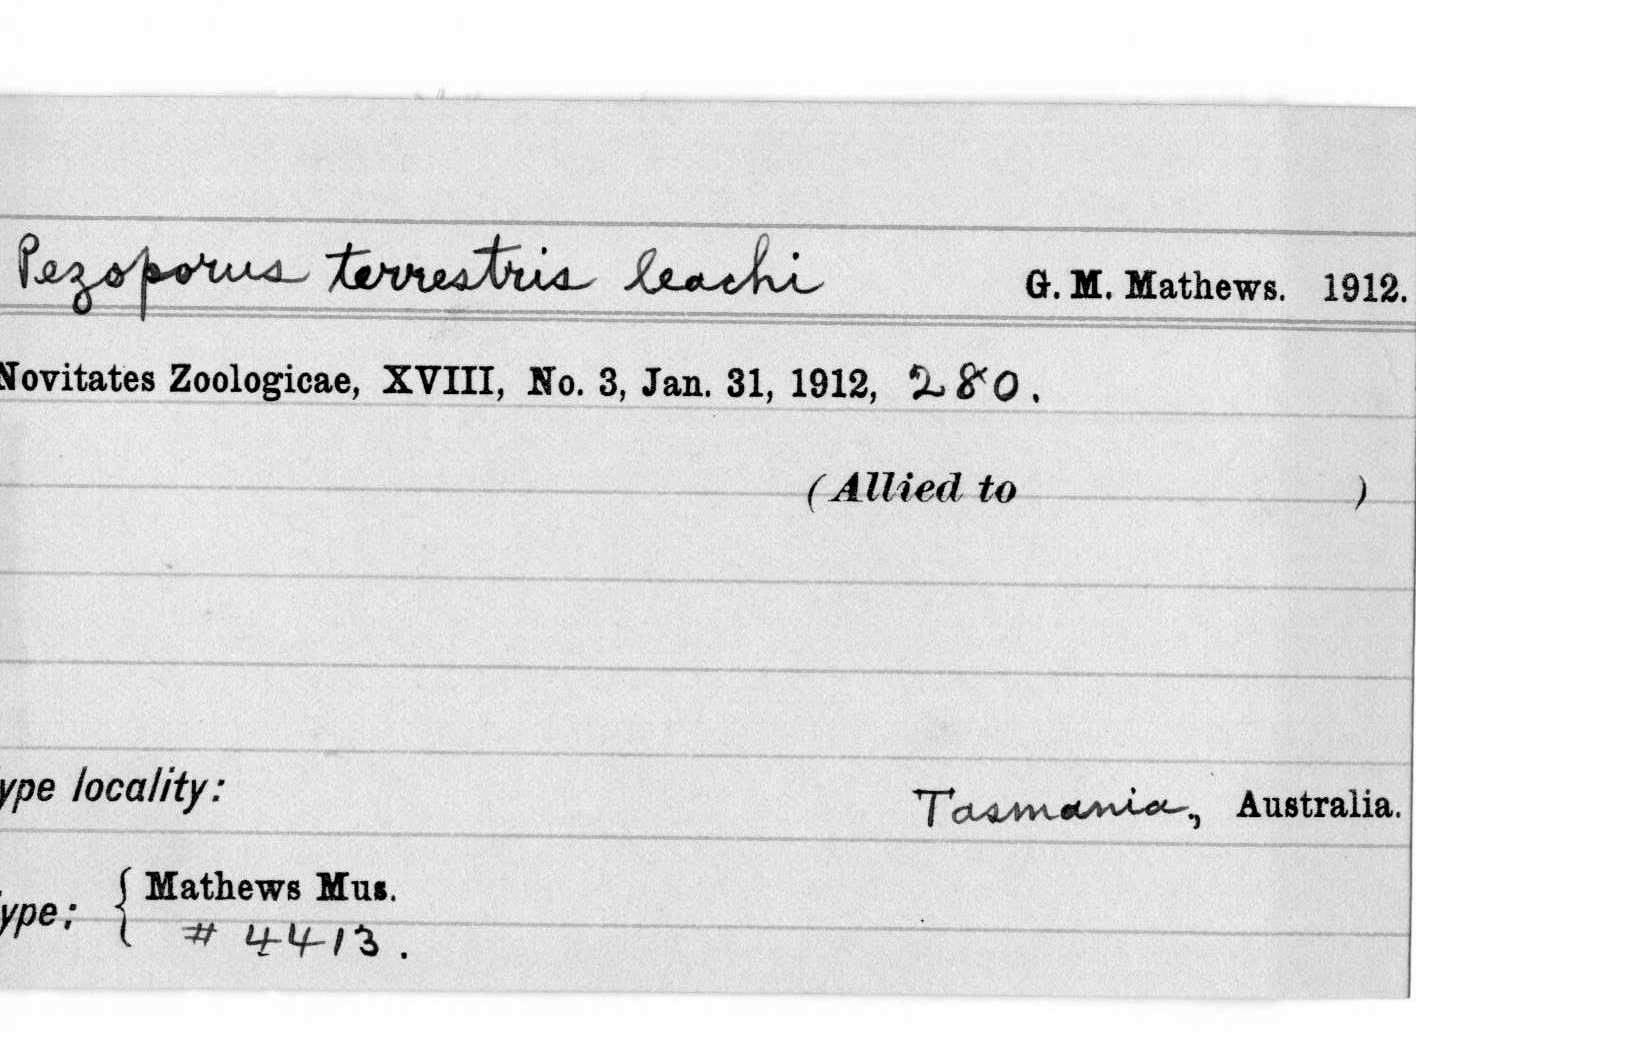 Pezoporus terrestris leachi G. M. Mathews. 1912.
Novitates Zoologicae, XVIII, No. 3, Jan. 31, 1912, 280.
(Allied to )
ype locality: Tasmania, Australia.
ype: { Mathews Mus.
# 4413.